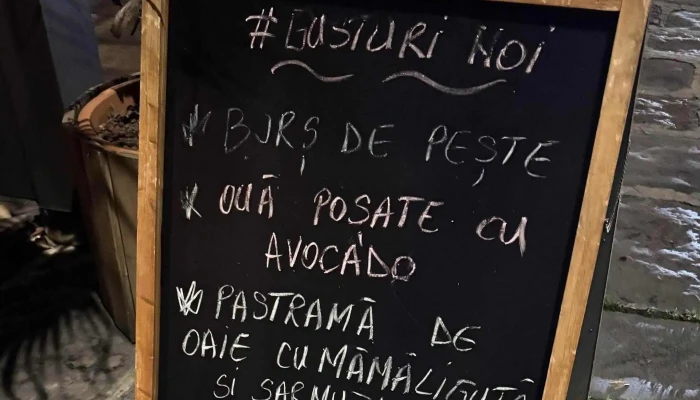 #GUSTURI NOI
BURȘ DE PEȘTE
OUĂ POSATE CU
AVOCADO
PASTRAMĂ DE
OAIE CU MĂMĂLIGUȚĂ
ȘI